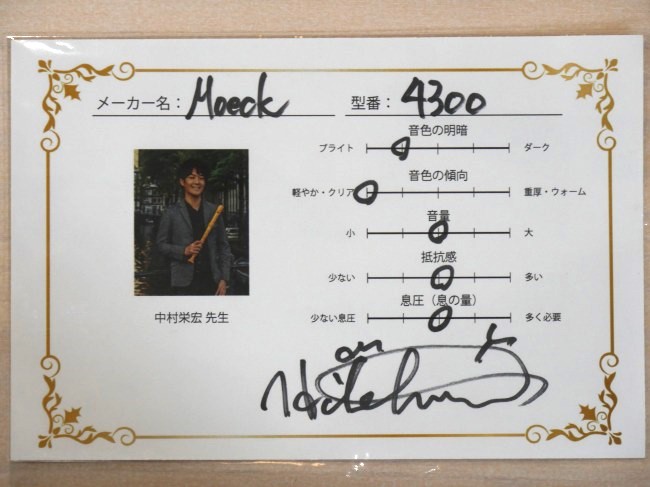 メーカー名：Moeck
型番：4300
音色の明暗
ブライト ダーク
音色の傾向
軽やか・クリア 重厚・ウォーム
音量
小 大
抵抗感
少ない 多い
息圧（息の量）
少ない息圧 多く必要
中村栄宏 先生